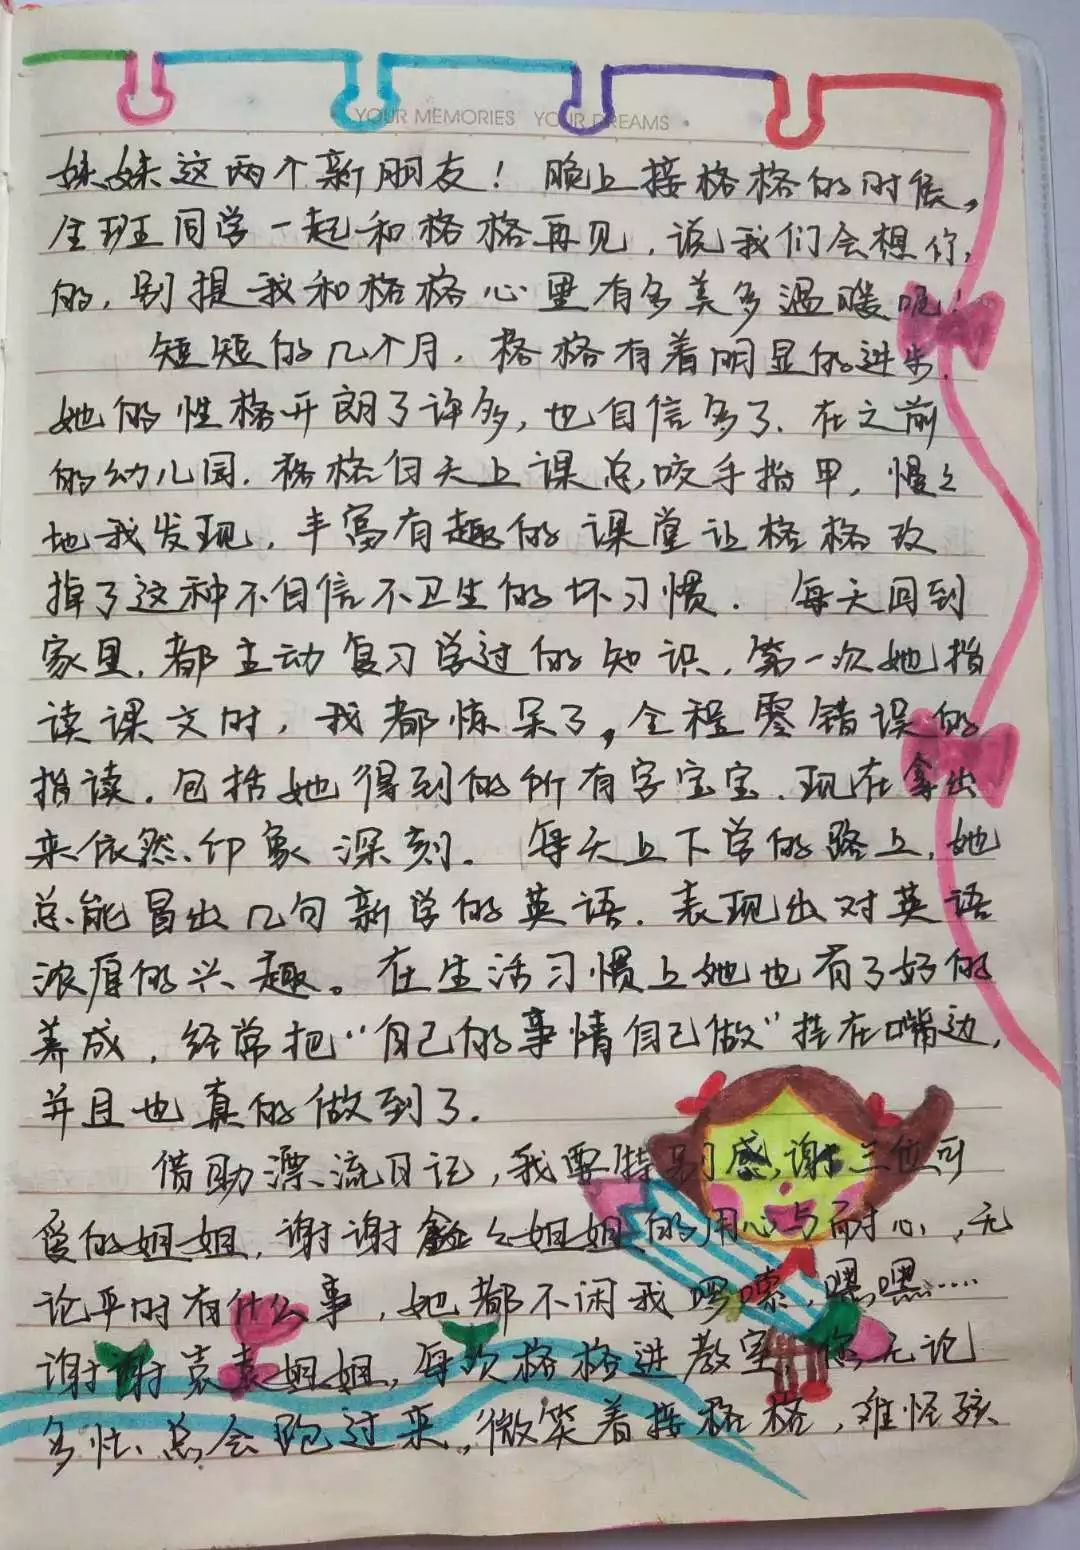 YOUR MEMORIES YOUR DREAMS
妹妹这两个新朋友！晚上接格格的时候，
全班同学一起和格格再见，说我们会想你
的，别提我和格格心里有多美多温暖呢！
短短的几个月，格格有着明显的进步，
她的性格开朗了许多，也自信多了。在之前
的幼儿园，格格白天上课总咬手指甲，慢之
地我发现，丰富有趣的课堂让格格改
掉了这种不自信不卫生的坏习惯。每天回到
家里，都主动复习学过的知识，第一次她指
读课文时，我都惊呆了，全程零错误的
指读，包括她得到的所有字宝宝，现在拿出
来依然印象深刻。每天上下学的路上，她
总能冒出几句新学的英语，表现出对英语
浓厚的兴趣。在生活习惯上她也有了好的
养成，经常把“自己的事情自己做”挂在嘴边，
并且也真的做到了。
借助漂流日记，我要特别感谢三位可
爱的姐姐，谢谢鑫么姐姐的用心与耐心，无
论平时有什么事，她都不闲我啰嗦，嘿嘿……
谢谢袁袁姐姐，每次格格进教室，您无论
多忙、总会跑过来，微笑着接格格，难怪孩